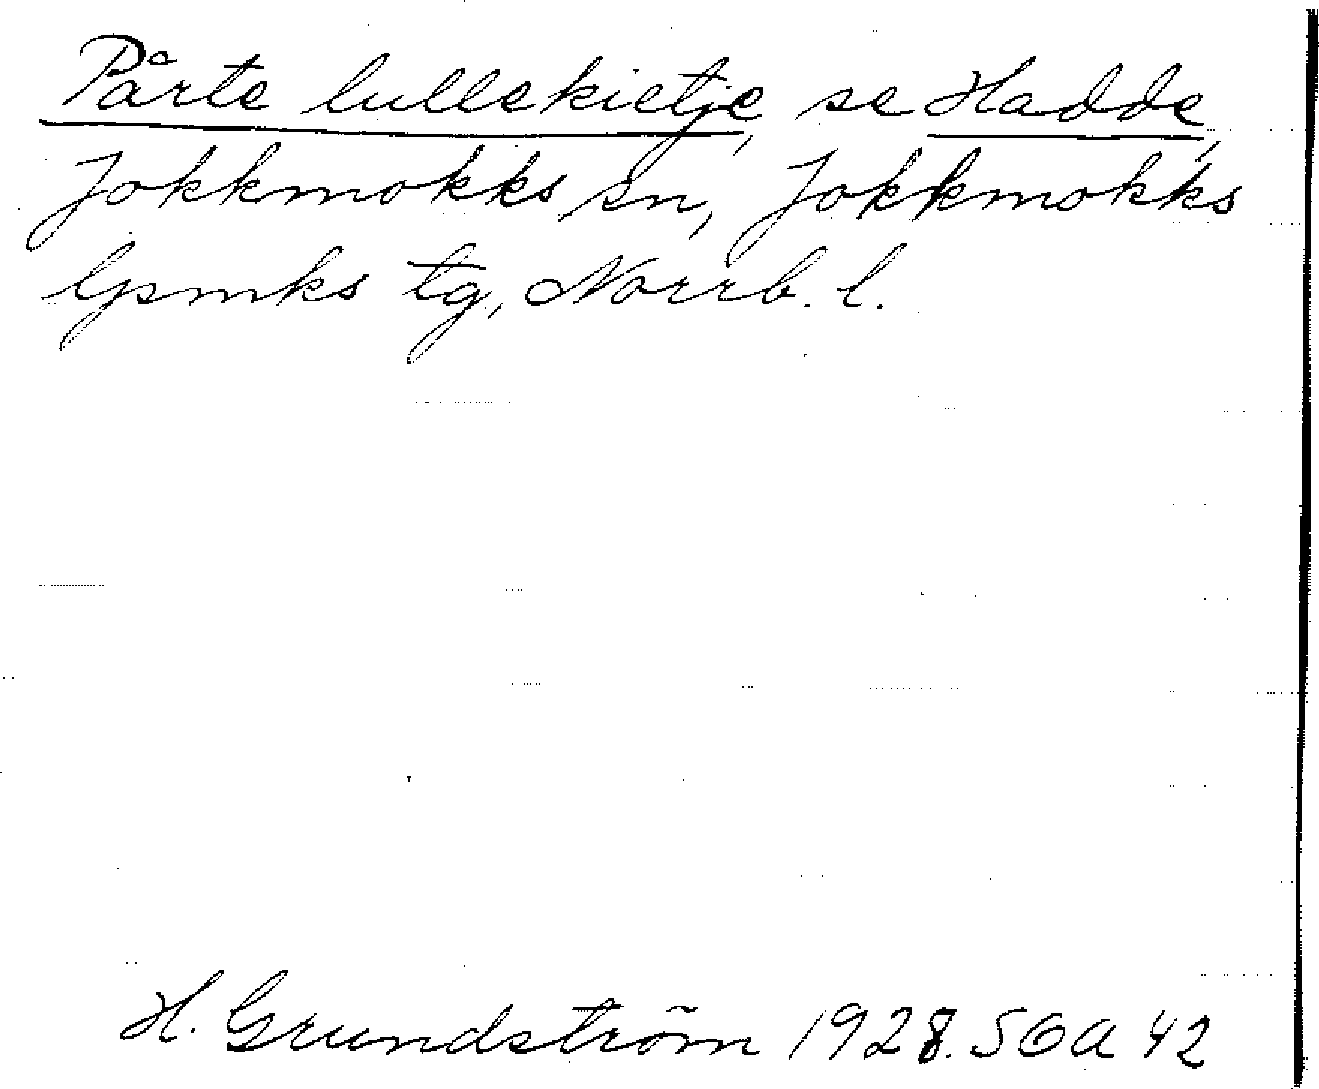 Pårte lullekietje, se Hadde,
Jokkmokks sn, Jokkmokks
lpsmks tg, Norrb. l.
H. Grundström 1928. 56a 42